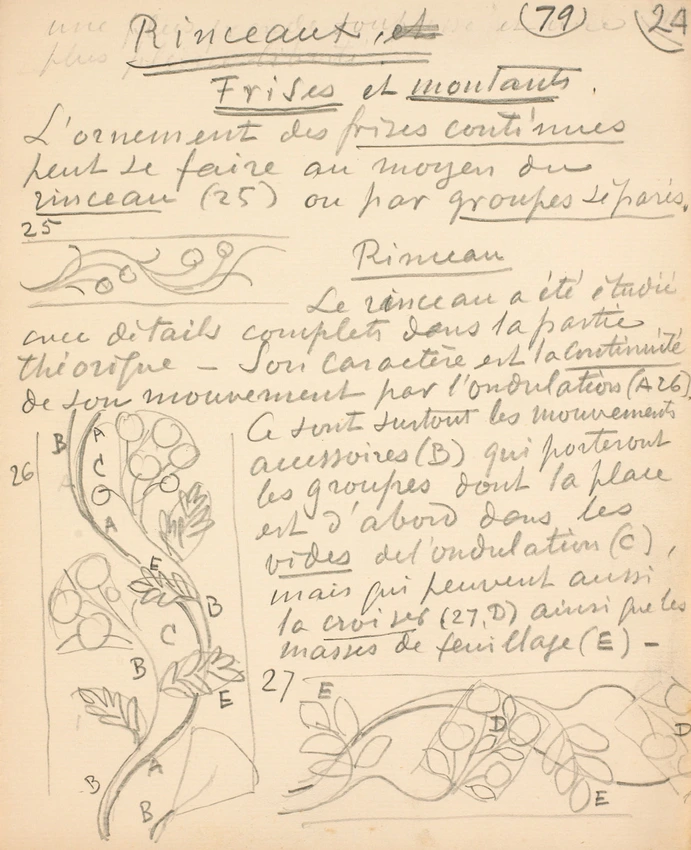 (79) 24
Rinceaux, et
Frises et montants.
L'ornement des frises continues
peut se faire au moyen du
rinceau (25) ou par groupes séparés.
25
Rinceau
Le rinceau a été étudié
avec détails complets dans la partie
théorique — Son caractère est la continuité
de son mouvement par l'ondulation (A 26).
Ce sont surtout les mouvements
accessoires (B) qui porteront
les groupes dont la place
est d'abord dans les
vides de l'ondulation (C),
mais qui peuvent aussi
la croiser (27, D) ainsi que les
masses de feuillage (E) —
26
B
A
C
A
E
B
C
B
E
A
B
B
27
E
D
D
E